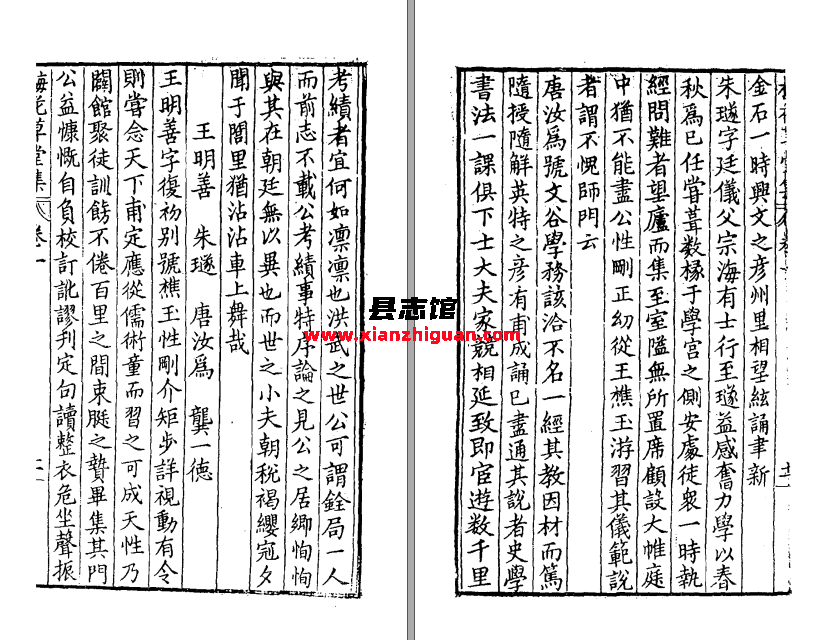 考績者宜何如凛凛也洪武之世公可謂銓局一人
而前志不載公考績事特序論之見公之居鄉恂恂
與其在朝廷無以異也而世之小夫朝稅褐纓冠夕
聞于閭里猶沾沾車上舞哉
王明善 朱璲 唐汝爲 龔一德
王明善字復初别號樵玉性剛介矩步詳視動有令
則嘗念天下甫定應從儒術童而習之可成天性乃
闢館聚徒訓飭不倦百里之間束脡之贄畢集其門
公益慷慨自負校訂訛謬刊定句讀整衣危坐聲振
梅花草堂集 卷一
金石一時興文之彥州里相望絃誦聿新
朱璲字廷儀父宗海有士行至璲益感奮力學以春
秋爲已任甞葺數椽于學宮之側安處徒衆一時執
經問難者望廬而集至室隘無所置席顧設大帷庭
中猶不能盡公性剛正幼從王樵玉游習其儀範說
者謂不愧師門云
唐汝爲號文谷學務該洽不名一經其教因材而篤
隨授隨解英特之彥有甫成誦已盡通其說者史學
書法一課俱下士大夫家競相延致即宦遊数千里
县志馆
www.xianzhiguan.com